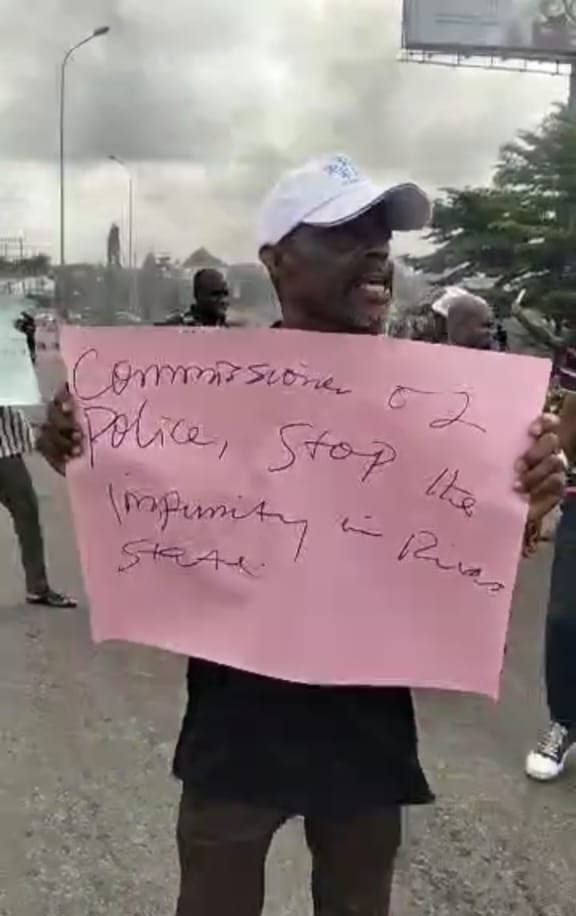 Commissioner of
Police, Stop the
impunity in Rivers
State.